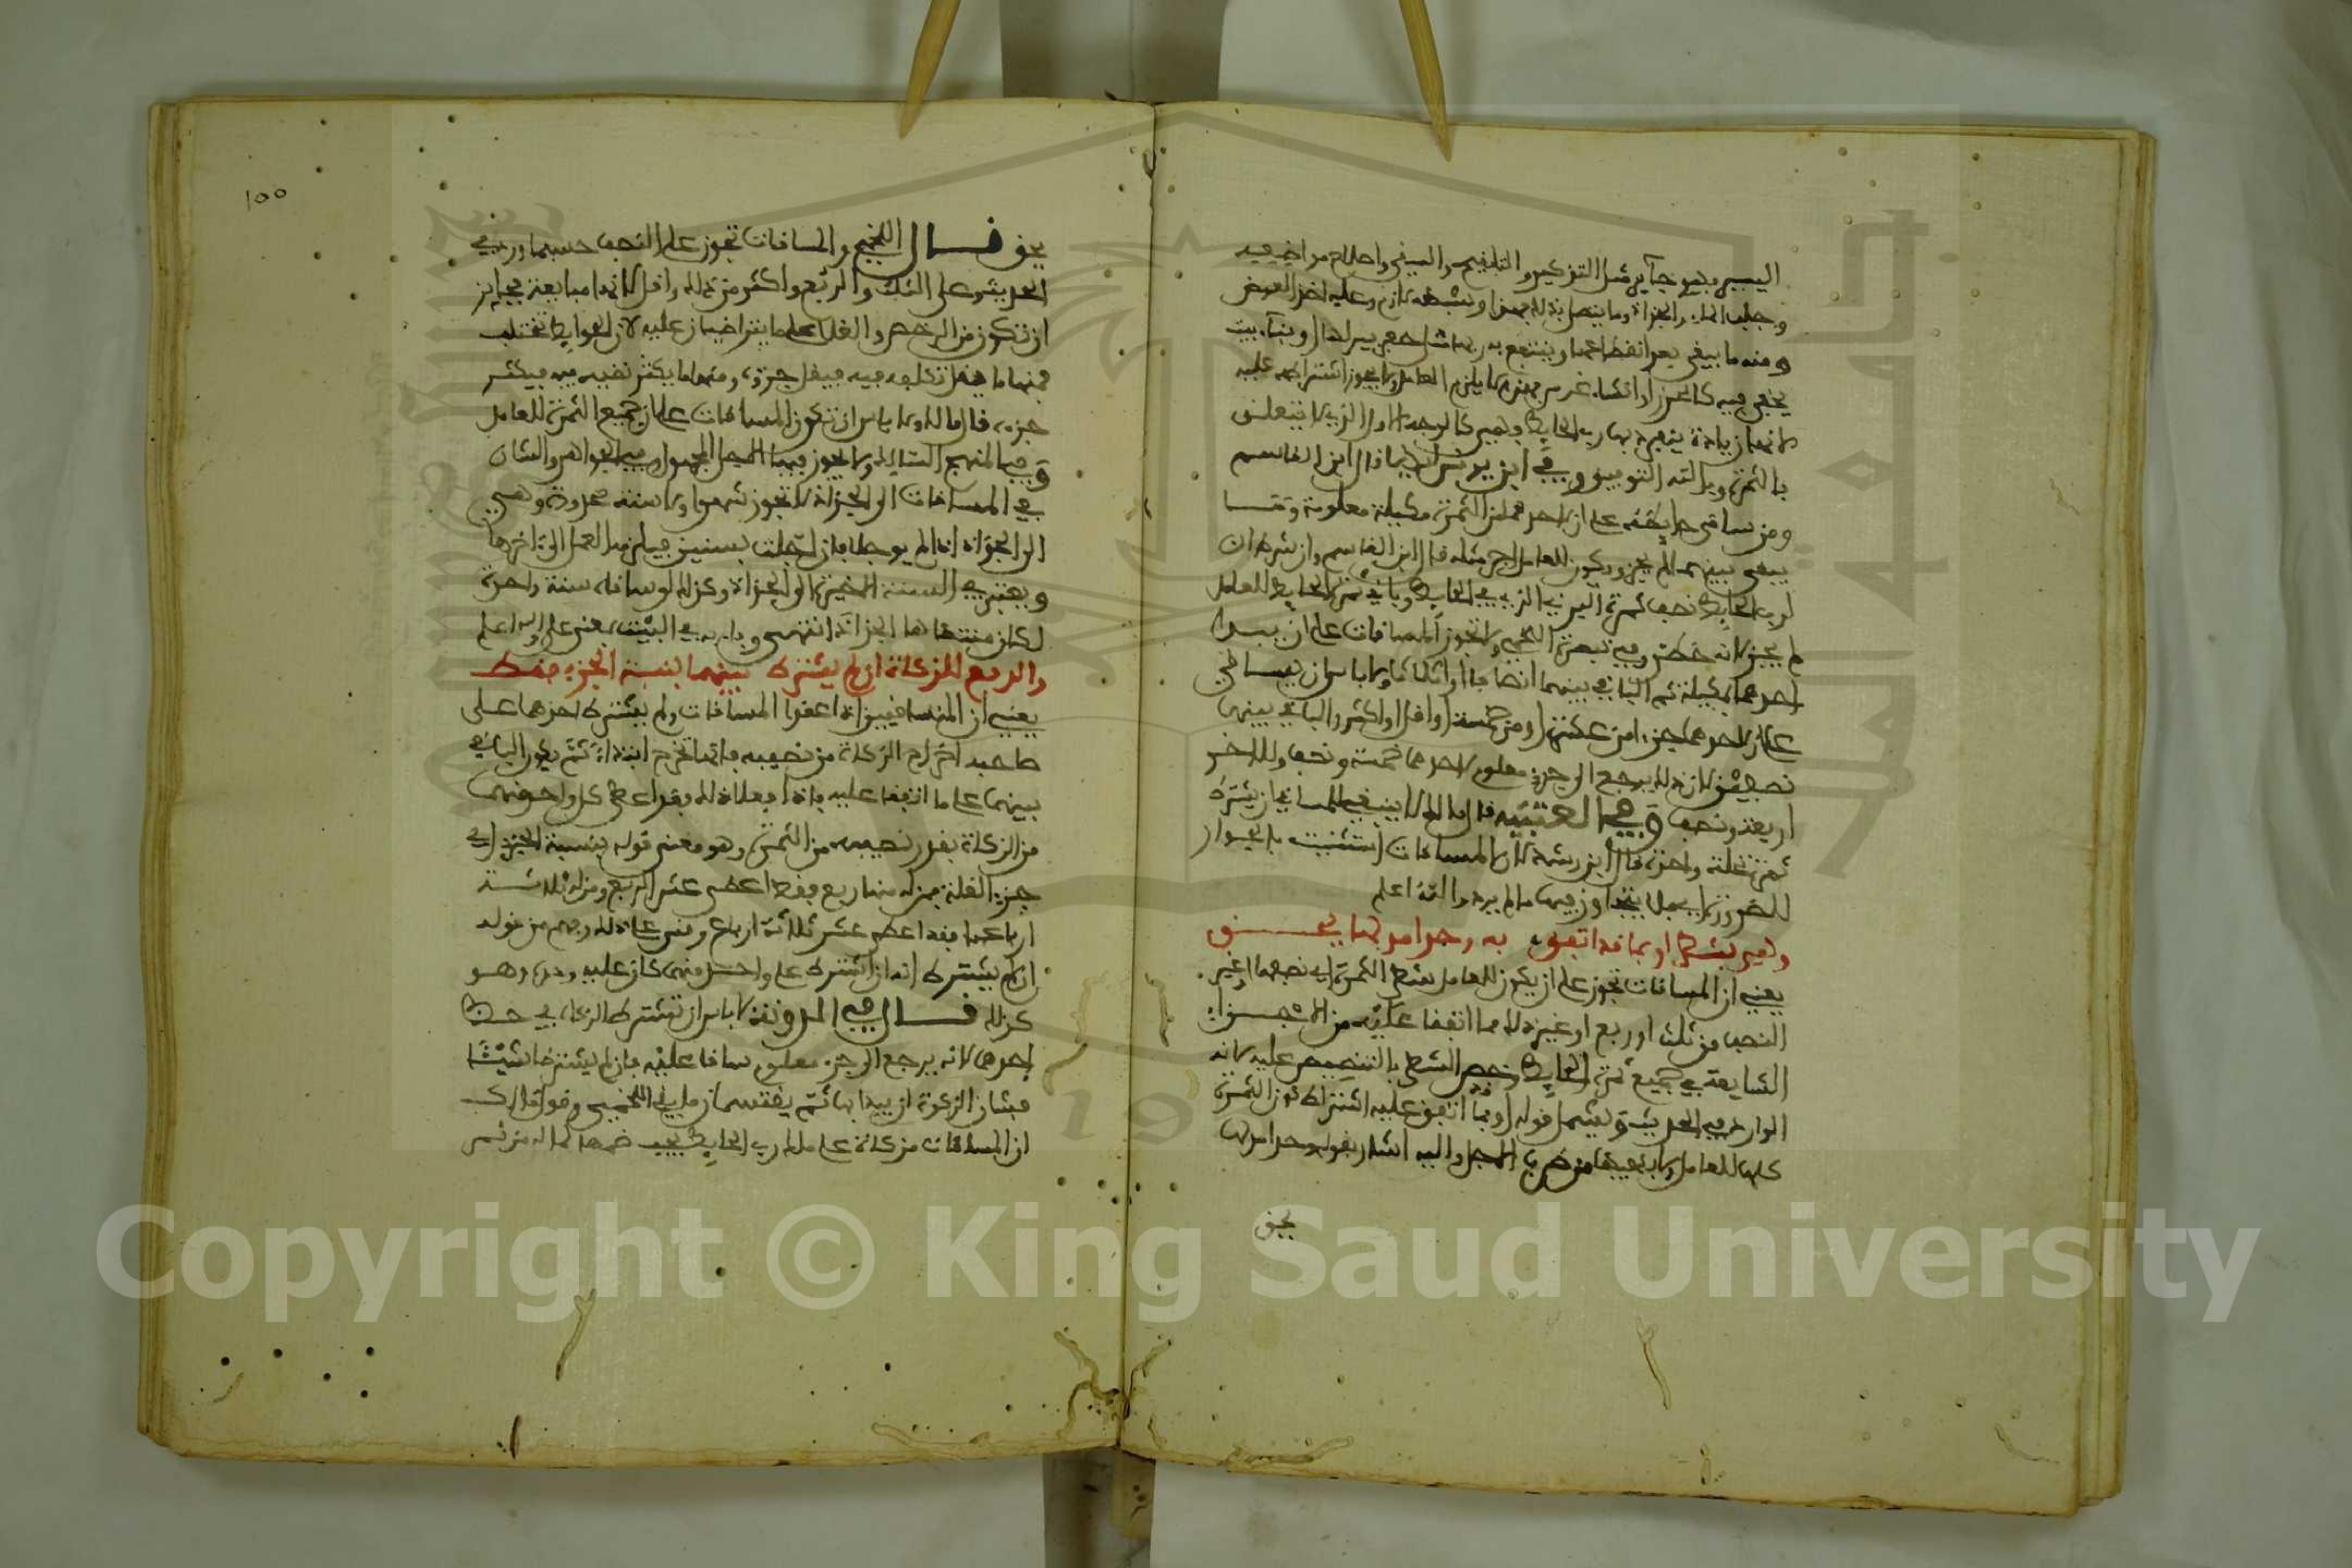 اليسير فهو جايز مثل التذكير والتلقيح والسقي واصلاح مواضعه
وجلب الماء والجذاذ وما يتصل بذلك فهذا وشبهه لازم وعليه اخذ العوض
ومنه ما يبقى بعد انقطاعها وينتفع به ربها مثل حفر بير لها او بناء بيت
يجنى فيه كالجرين او انشاء غرس فهذا لا يلزم العامل ولا يجوز اشتراطه عليه
لانها زيادة ينفرد بها رب الحايط وهي كالوجه الاول الذي لا يتعلق
بالثمرة وبالله التوفيق وفي ابن يونس قال ابن القاسم
ومن ساقى حايطه على ان لاحدهما من الثمرة مكيلة معلومة وما
يبقى بينهما لم يجز ويكون للعامل اجر مثله قال ابن القاسم وان شرط ان
لرب الحايط نصف ثمرة البرني الذي في الحايط وباقي ثمرة الحايط للعامل
لم يجز لانه خطر وفي تبصرة اللخمي ولا تجوز المساقات على ان يبدا
احدهما بمكيلة ثم الباقي بينهما انصافا او اثلاثا ولا باس ان يساقي
على ان لاحدهما جزءا من عشرة او من خمسة او اقل او اكثر والباقي بينهما
نصفين لان ذلك يرجع الى جزء معلوم لاحدهما خمسة ونصف وللاخر
اربعة ونصف وفي العتبية قال مالك لا ينبغي للمساقي ان يشترط
ثمرة نخلة واحدة قال ابن رشد لان المساقات استثنيت بالجواز
للضرورة فلا يتجاوز فيها ما لم يرد والله اعلم
وهي بشطر او بما قد اتفق به وحد امدها يحق
يعني ان المساقات تجوز على ان يكون للعامل شطر الثمرة اي نصفها او غير
النصف من ثلث او ربع او غير ذلك مما اتفقا عليه من الاجزاء
الشايعة في جميع ثمرة الحايط وخص الشطر بالتنصيص عليه لانه
الوارد في الحديث ويشمل قوله او بما قد اتفق عليه اشتراط كون الثمرة
كلها للعامل ولا بد فيها من ضرب الاجل واليه اشار بقوله وحد امدها
يحق
١٥٥
يحق قال اللخمي والمساقات تجوز على النصف حسبما ورد في
الحديث وعلى الثلث والربع واكثر من ذلك واقل لانها مبايعة فجايز
ان تكون من الرخص والغلا على ما يتراضيان عليه لان الحوايط تختلف
فمنها ما تقل تكلفه فيه فيقل جزؤه ومنها ما يكثر تعبه فيه فيكثر
جزءه قال مالك ولا باس ان تكون المساقات على ان جميع الثمرة للعامل
وفي المنهج السالك ولا يجوز فيها الاجل المجهول وفي الجواهر والشان
في المساقات الى الجذاذ لا تجوز شهرا ولا سنة محدودة وهي
الى الجذاذ اذا لم يوجلا فان اجلت بسنين فيلزمه العمل الى اخرها
ويعتبر في السنة الاخيرة الى الجذاذ وكذلك لو ساقاه سنة واحدة
لكان منتهاها الجذاذ انتهى وبا به في البيت بمعنى على والله اعلم
والدفع للزكاة ان لم يشترط بينهما بنسبة الجزء فقط
يعني ان المتساقيين اذا عقدا المساقات ولم يشترط احدهما على
صاحبه اخراج الزكاة من نصيبه فانها تخرج ابتداء ثم يكون الباقي
بينهما على ما اتفقا عليه فاذا فعلا ذلك فقد اعطى كل واحد منهما
من الزكاة بقدر نصيبه من الثمرة وهو معنى قوله بنسبة الجزء اي
جزء الغلة فمن له منها ربع فقد اعطى عشر الربع ومن له ثلاثة
ارباعها فقد اعطى عشر ثلاثة ارباع وقس على ذلك وفهم من قوله
ان لم يشترط انه ان اشترط على واحد منهما كان عليه وحده وهو
كذلك قال في المدونة لا باس ان تشترط الزكاة في حظ
احدهما لانه يرجع الى جزء معلوم ساقا عليه فان لم يشترطا شيئا
فشان الزكوة ان يبدا بها ثم يقتسمان ما بقي اللخمي وقول مالك
ان المساقات مزكاة على ملك رب الحايط يجب ضمها لما له من ثمر